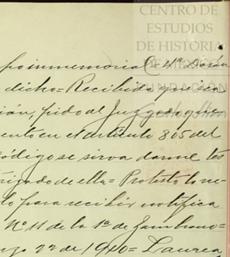 CENTRO DE
ESTUDIOS
DE HISTORIA
po inmemorial
dicho = Recibida que sea
ción, pido al Juzgado
ento en el artículo 805 del
ódigo se sirva darme tes
de ella = Protesto lo ne
lo para recibir notifica
Nº 11 de la 1ª de
22 de 1910 = Laurea